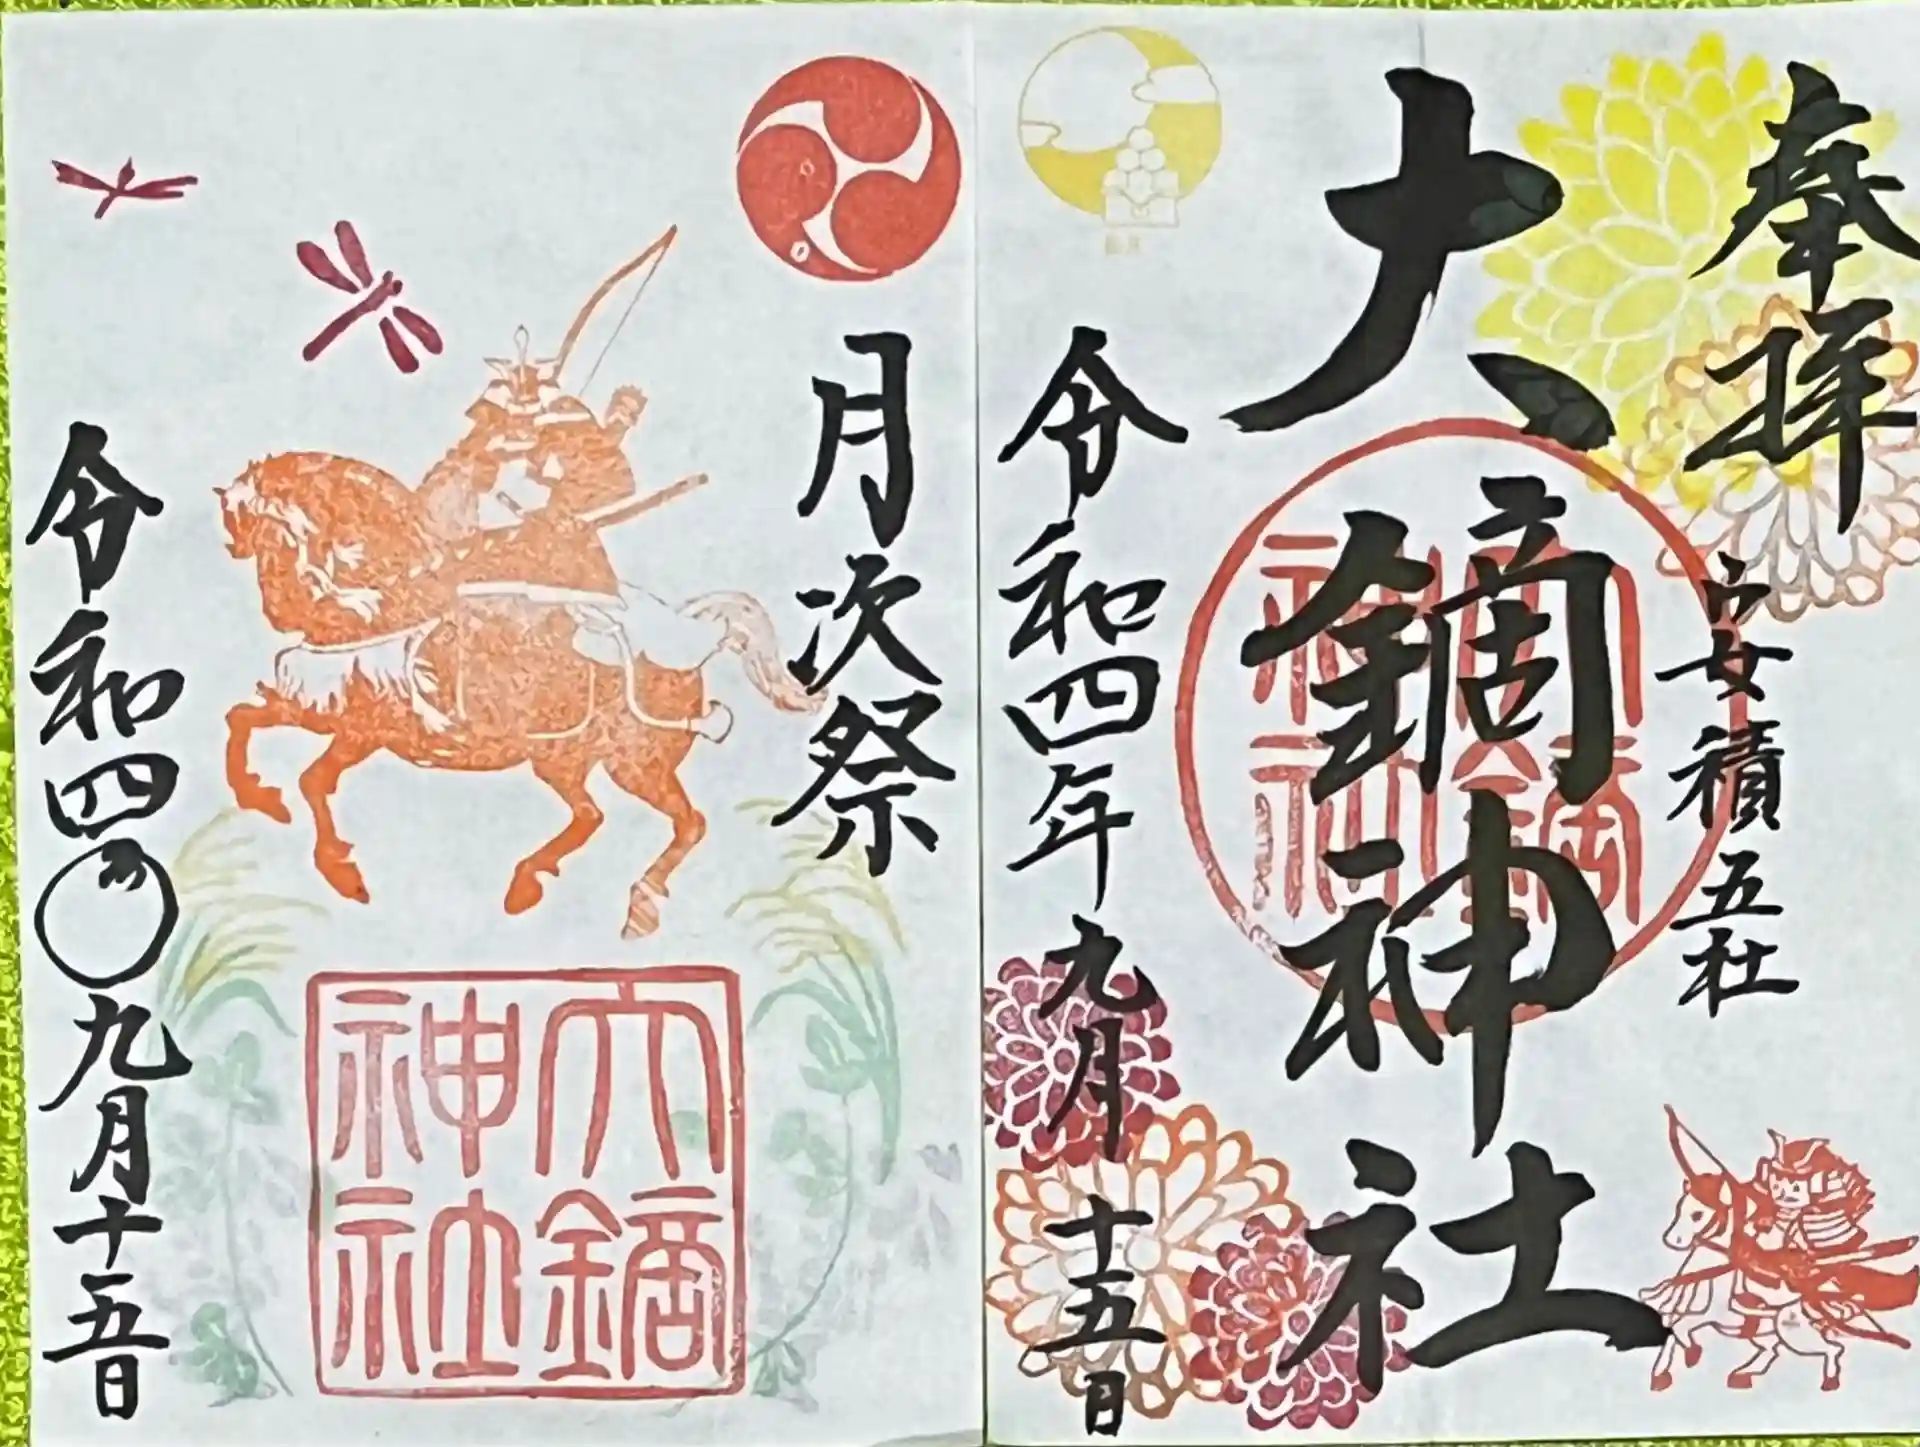 奉拝
安積五社
大鏑神社
大鏑神社
令和四年九月十五日
月次祭
大鏑神社
令和四年九月十五日